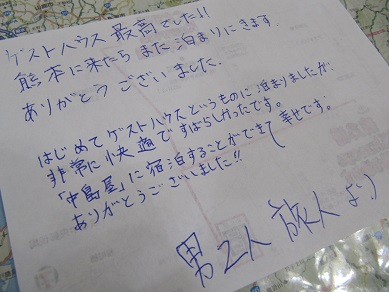 ゲストハウス最高でした!!
熊本に来たらまた泊まりにきます
ありがとうございました.
はじめてゲストハウスというものに泊まりましたが
非常に快適ですばらしかったです。
「中島屋」に宿泊することができて幸せです。
ありがとうございました!!
男2人旅人より